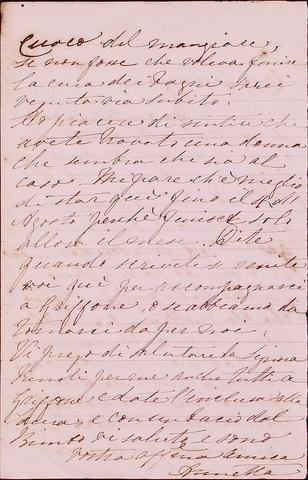 cuoco del mangiare,
se non fosse che voleva finire
la cura dei bagni sarei
venuta via subito.
Ho piacere di sentire che
avete trovato una donna
che sembra che sia al
caso. Mi pare che meglio
di star qui fino il 4 di
Agosto perchè finisce solo
allora il mese. Dite
quando scrivete se venite
voi qui per accompagnarci
a Griffone, o se abbiamo da
tornarci da per noi.
Vi prego di salutare la signora
per me anche tutti a
Griffone e date l'inclusa alla
e con un bacio dal
Bimbo vi saluto e sono
vostra affma amica
Annetta